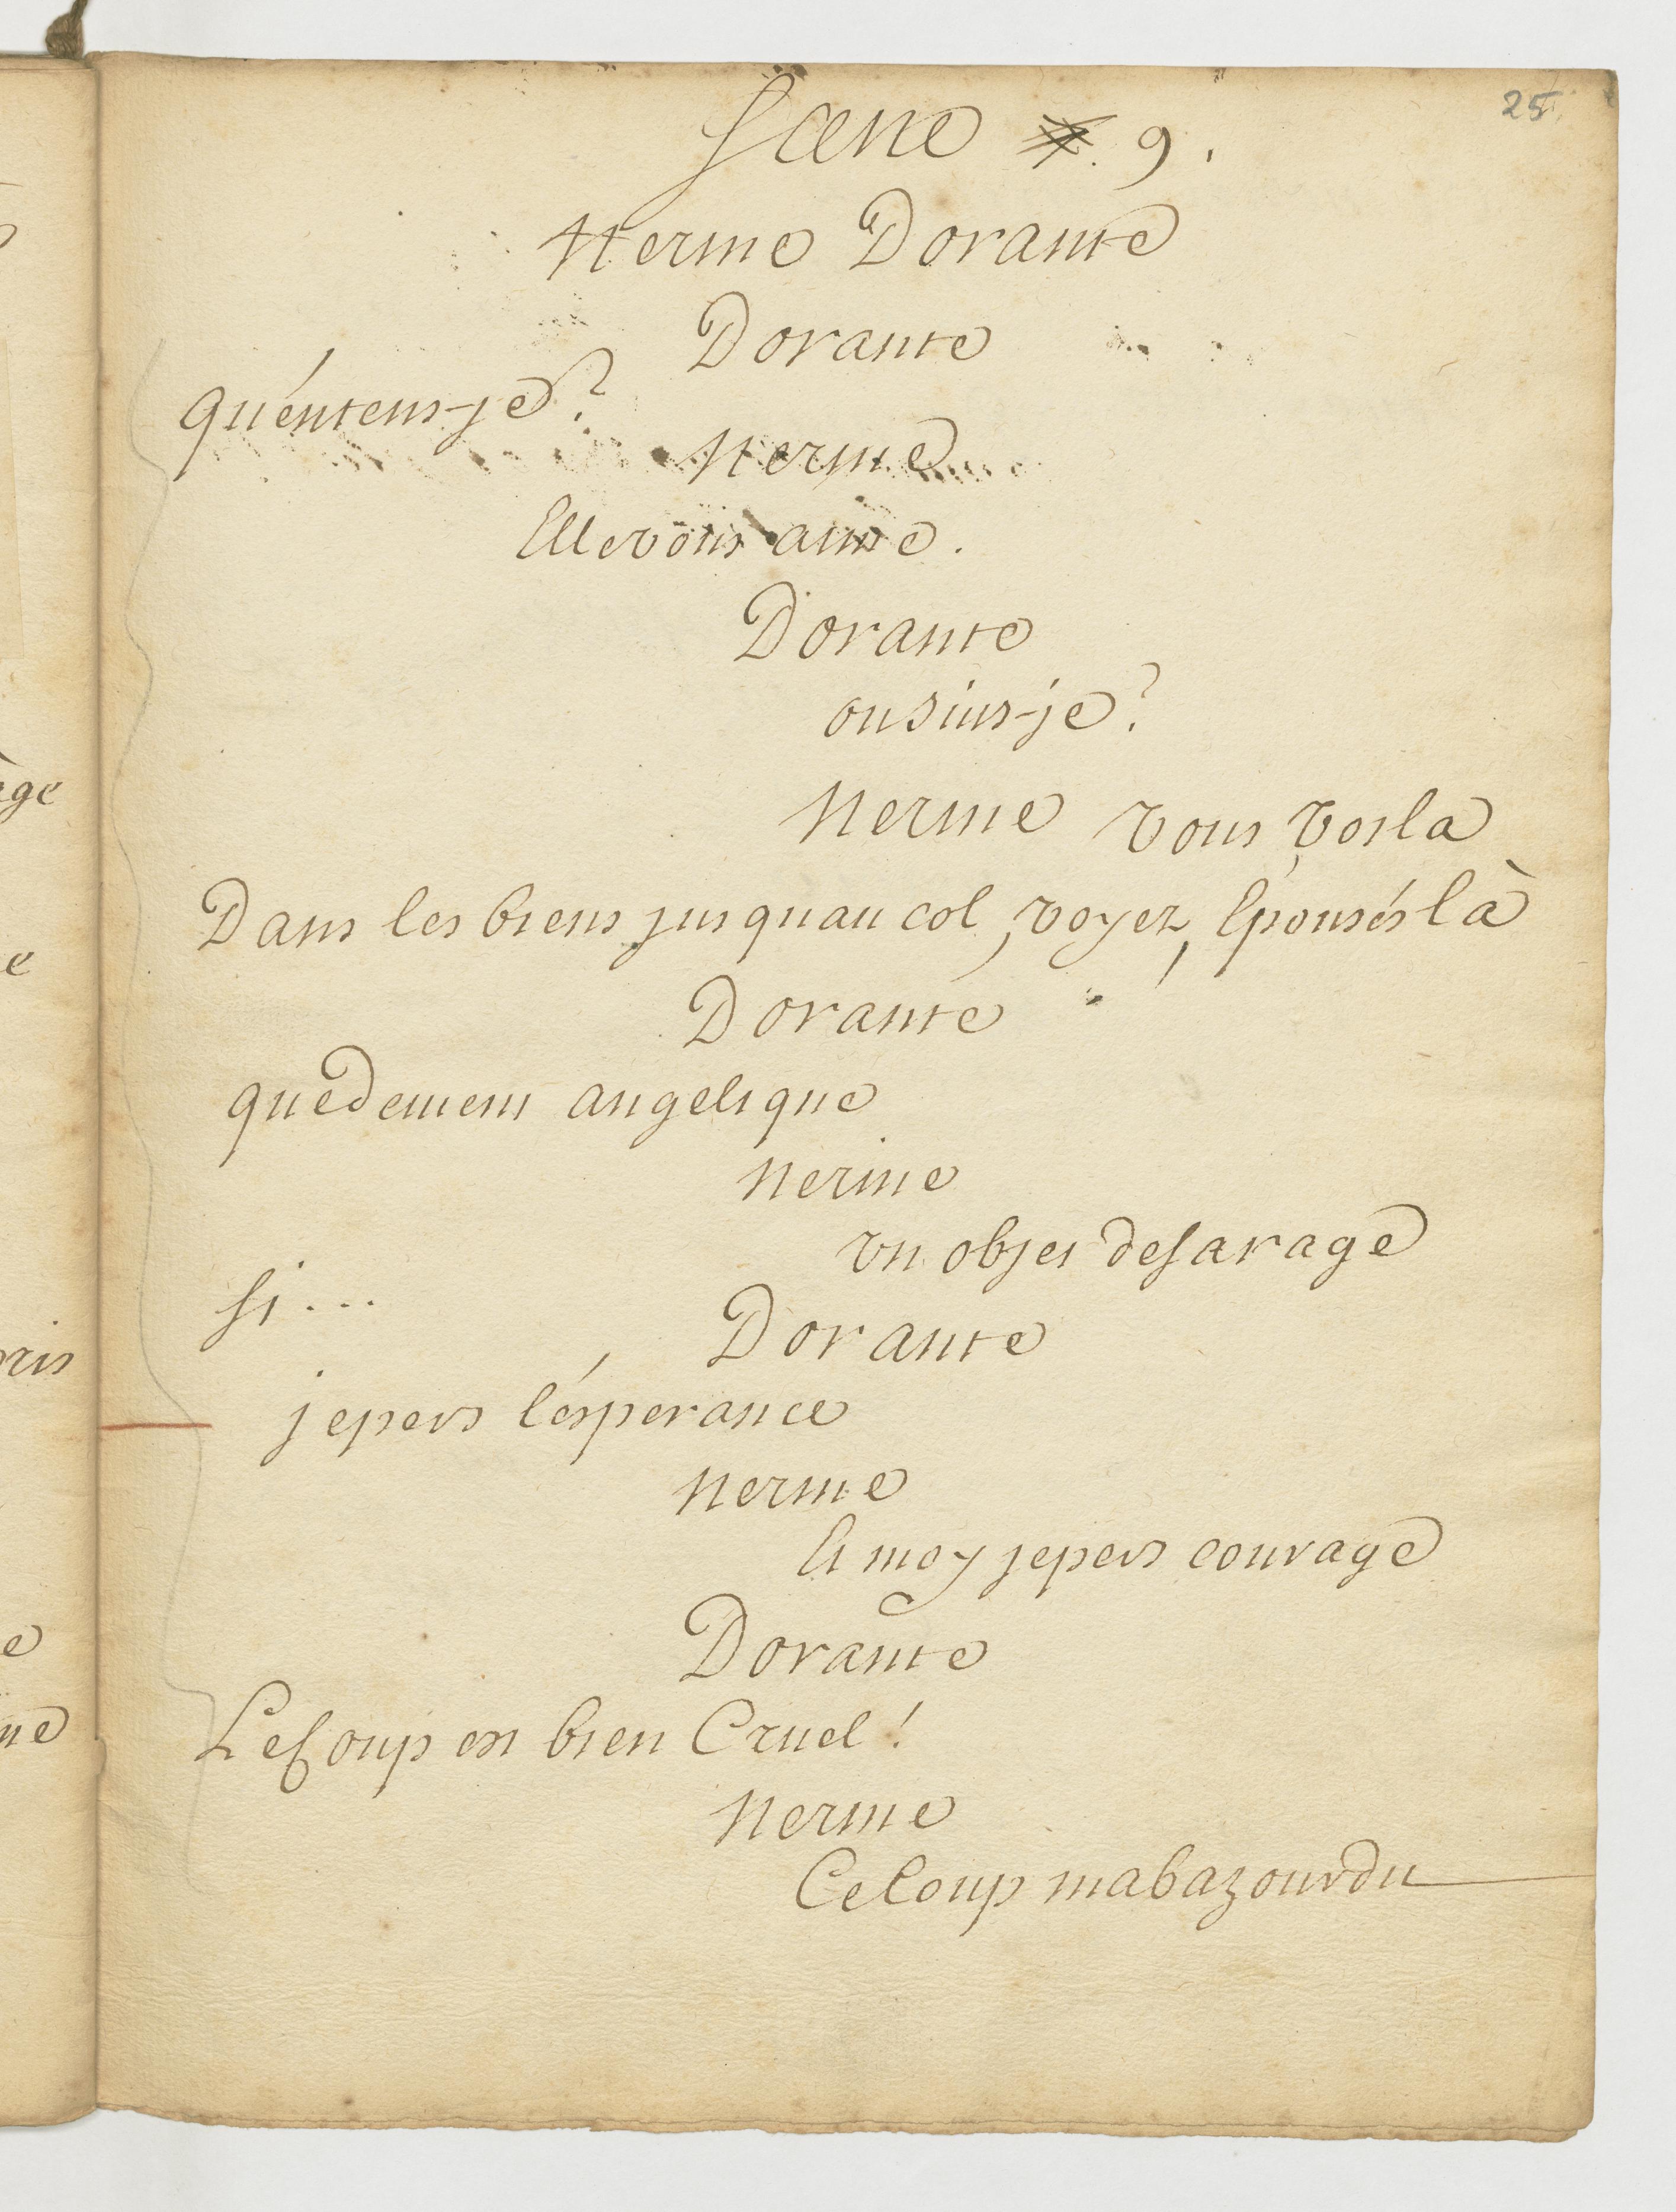 25
Scene 9.
Nerine Dorante
Dorante
qu'entens-je?
Nerine
Elle vous aime.
Dorante
ou suis-je?
Nerine vous voila
Dans les biens jusquau col, voyez, Epousés là
Dorante
que devient angelique
Nerine
un objet de sa rage
si...
Dorante
je pers l'ésperance
Nerine
Et moy je pers courage
Dorante
Le Coup est bien Cruel!
Nerine
Ce Coup mabazourdu